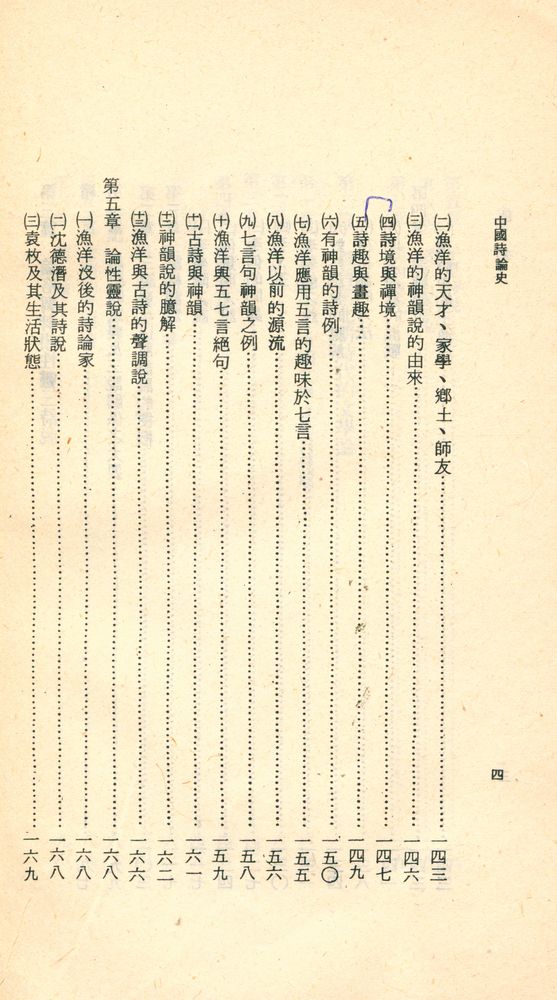 中國詩論史
四
㈡漁洋的天才、家學、鄉土、師友……一四三
㈢漁洋的神韻說的由來……一四六
㈣詩境與禪境……一四七
㈤詩趣與畫趣……一四九
㈥有神韻的詩例……一五〇
㈦漁洋應用五言的趣味於七言……一五五
㈧漁洋以前的源流……一五六
㈨七言句神韻之例……一五八
㈩漁洋與五七言絕句……一五九
(十一)古詩與神韻……一六一
(十二)神韻說的臆解……一六二
(十三)漁洋與古詩的聲調說……一六六
第五章 論性靈說……一六八
㈠漁洋沒後的詩論家……一六八
㈡沈德潛及其詩說……一六八
㈢袁枚及其生活狀態……一六九